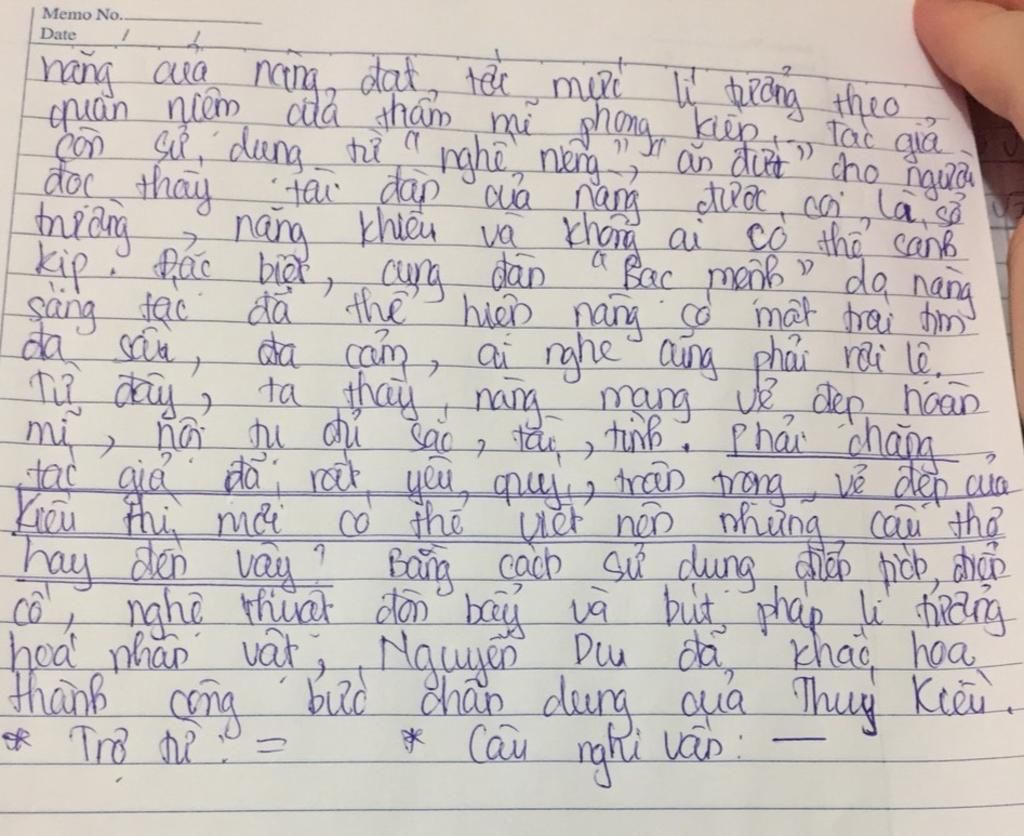 Memo No.
Date / /
năng của nàng đạt tới mức lí tưởng theo
quan niệm của thẩm mĩ phong kiến. Tác giả
còn sử dụng từ "nghề riêng", "ăn đứt" cho người
đọc thấy tài đàn của nàng được coi là sở
trường, năng khiếu và không ai có thể sánh
kịp. Đặc biệt, cung đàn "Bạc mệnh" do nàng
sáng tác đã thể hiện nàng có một trái tim
đa sầu, đa cảm, ai nghe cũng phải rơi lệ.
Từ đây, ta thấy nàng mang vẻ đẹp hoàn
mĩ, hội tụ đủ sắc, tài, tình. Phải chăng
tác giả đã rất yêu quý, trân trọng vẻ đẹp của
Kiều thì mới có thể viết nên những câu thơ
hay đến vậy? Bằng cách sử dụng điển tích, điển
cố, nghệ thuật đòn bẩy và bút pháp lí tưởng
hoá nhân vật, Nguyễn Du đã khắc hoạ
thành công bức chân dung của Thuý Kiều.
* Trợ từ: = * Câu nghi vấn: —